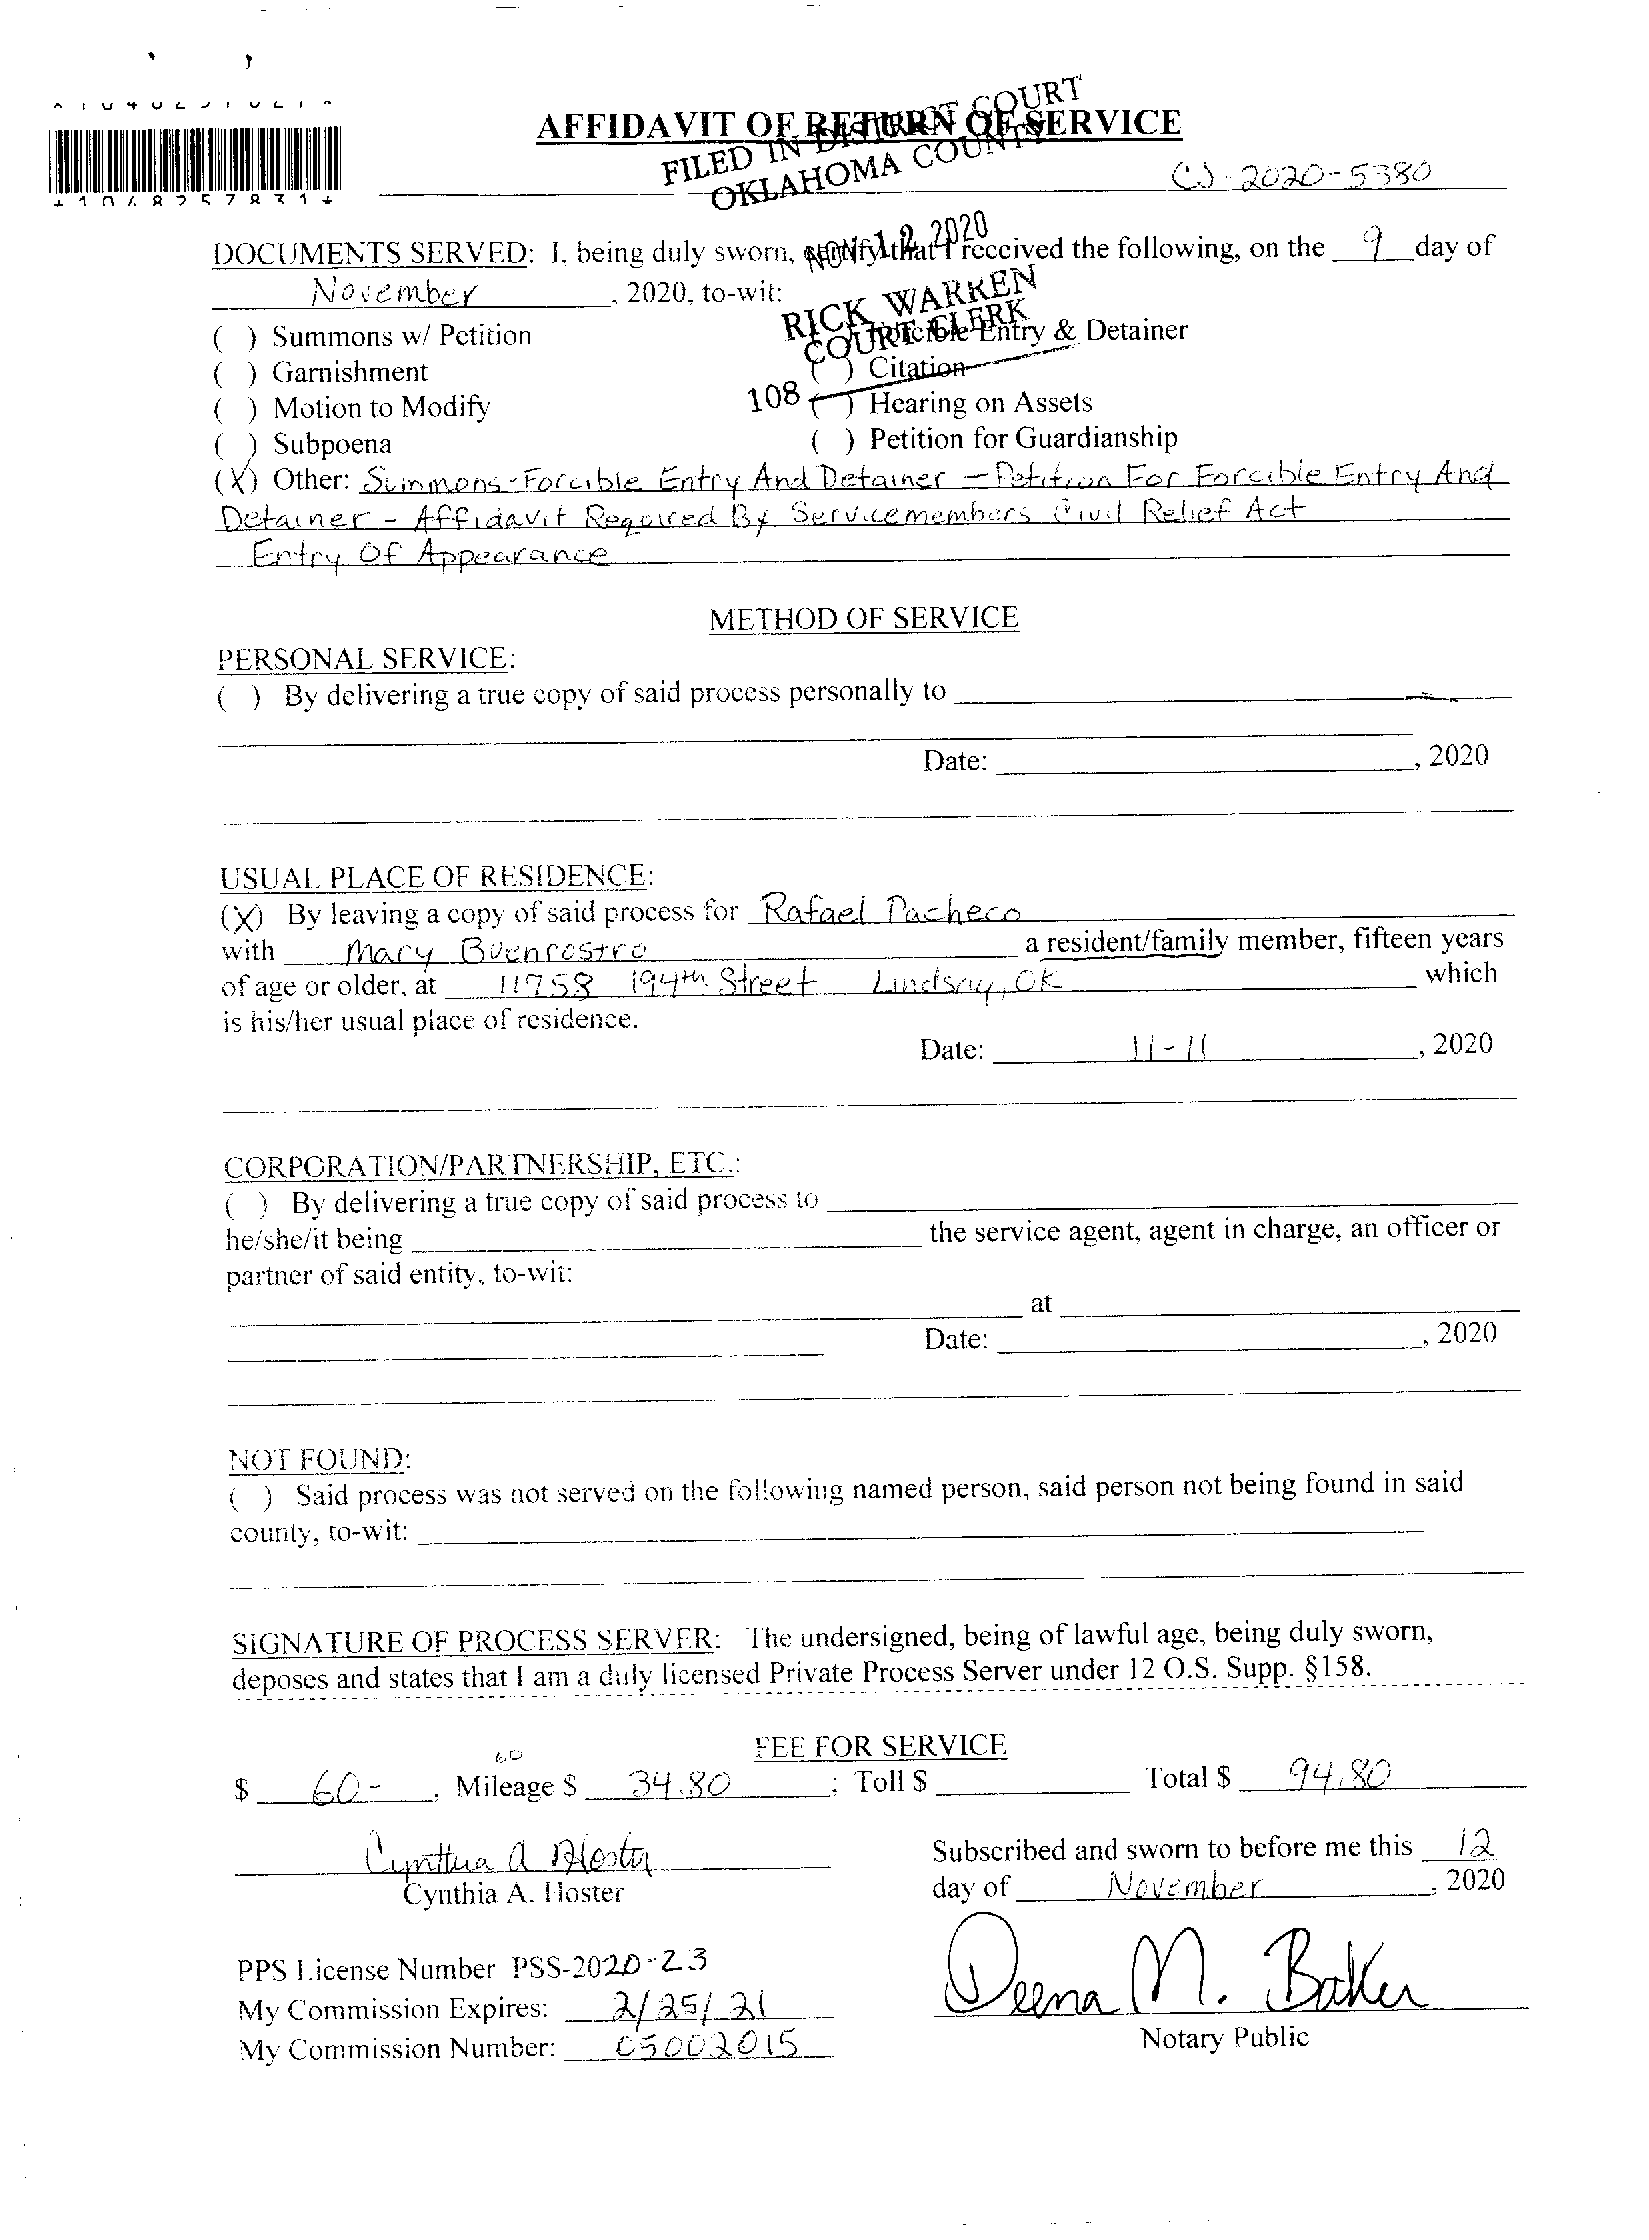 AFFIDAVIT OF RETURN OF SERVICE
FILED IN DISTRICT COURT
OKLAHOMA COUNTY
CJ-2020-5380
*1048257831*
NOV 12 2020
DOCUMENTS SERVED: I, being duly sworn, certify that I received the following, on the 9 day of
November, 2020, to-wit:
RICK WARREN
COURT CLERK
108
( ) Summons w/ Petition
( ) Forcible Entry & Detainer
( ) Garnishment
( ) Citation
( ) Motion to Modify
( ) Hearing on Assets
( ) Subpoena
( ) Petition for Guardianship
(X) Other: Summons-Forcible Entry And Detainer - Petition For Forcible Entry And
Detainer - Affidavit Required By Servicemembers Civil Relief Act
Entry Of Appearance
METHOD OF SERVICE
PERSONAL SERVICE:
( ) By delivering a true copy of said process personally to
Date: , 2020
USUAL PLACE OF RESIDENCE:
(X) By leaving a copy of said process for Rafael Pacheco
with Mary Buenrostro a resident/family member, fifteen years
of age or older, at 11758 194th Street Lindsay, OK which
is his/her usual place of residence.
Date: 11-11, 2020
CORPORATION/PARTNERSHIP, ETC.:
( ) By delivering a true copy of said process to
he/she/it being the service agent, agent in charge, an officer or
partner of said entity, to-wit:
at
Date: , 2020
NOT FOUND:
( ) Said process was not served on the following named person, said person not being found in said
county, to-wit:
SIGNATURE OF PROCESS SERVER: The undersigned, being of lawful age, being duly sworn,
deposes and states that I am a duly licensed Private Process Server under 12 O.S. Supp. §158.
FEE FOR SERVICE
60
$ 60-, Mileage $ 34.80; Toll $ Total $ 94.80
Cynthia A Hoster
Cynthia A. Hoster
Subscribed and sworn to before me this 12
day of November, 2020
PPS License Number PSS-2020-23
My Commission Expires: 2/25/21
My Commission Number: 05002015
Deena M. Baker
Notary Public